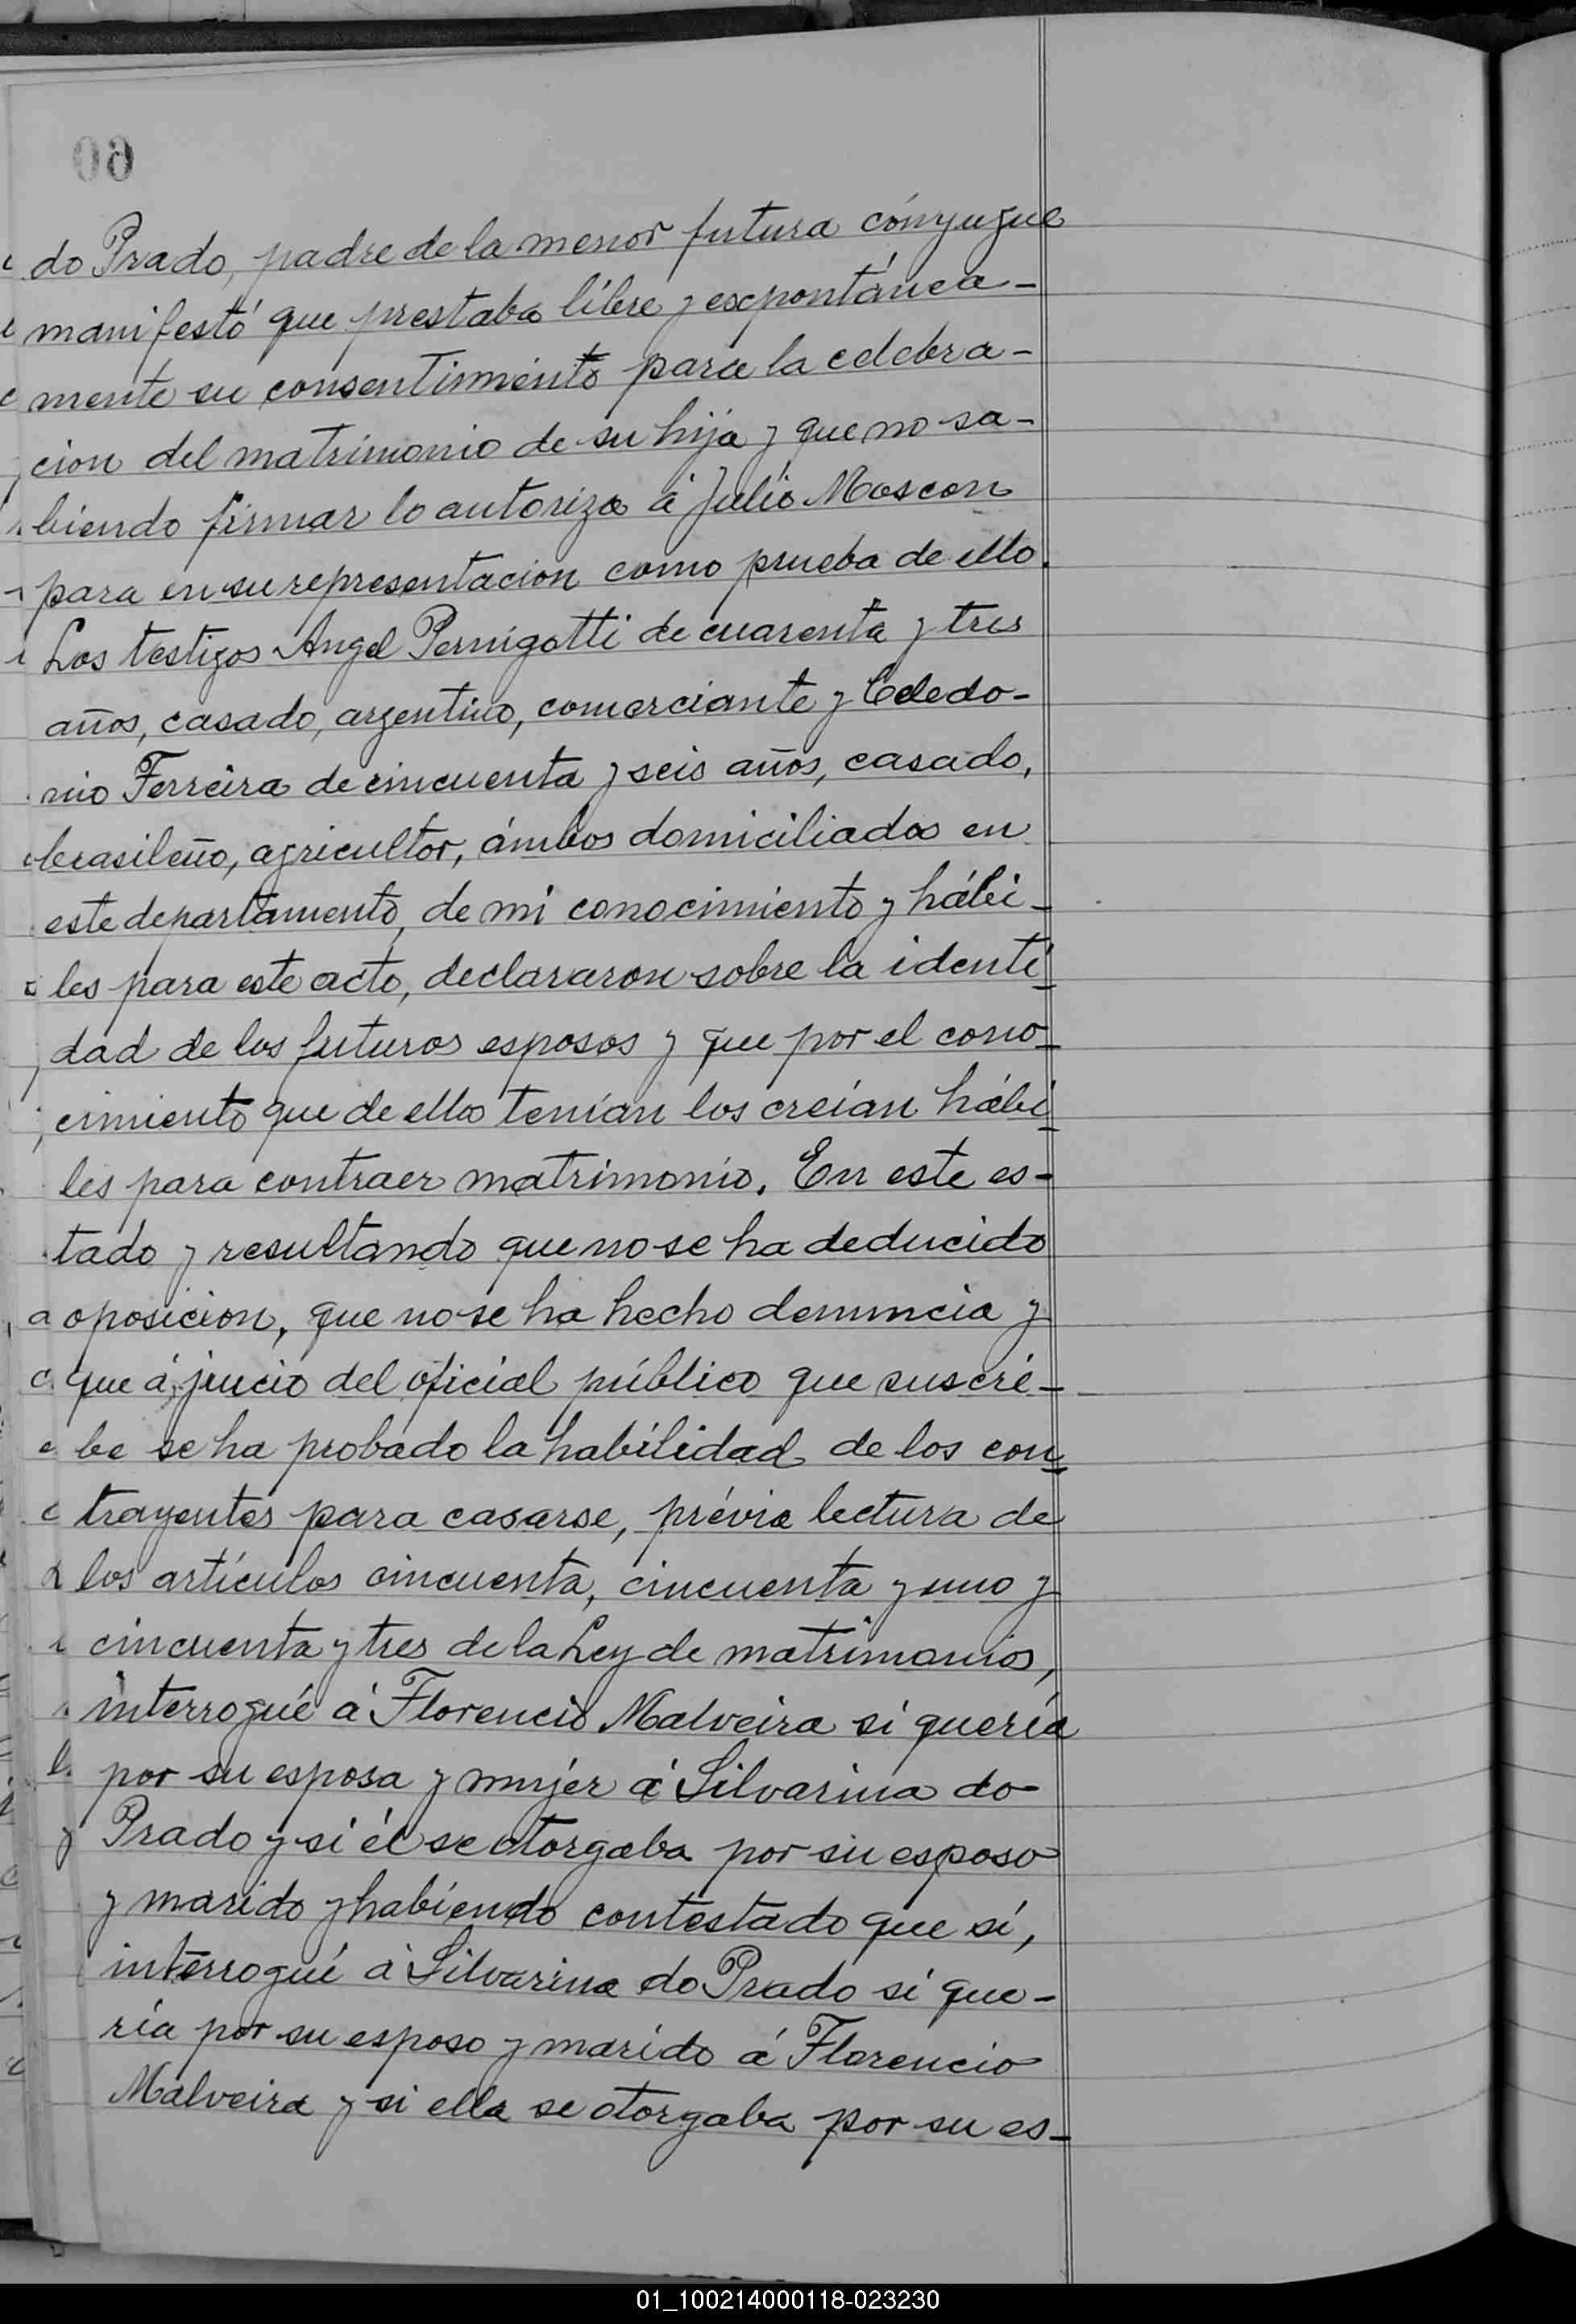 60
do Prado, padre de la menor futura cónyugue
manifestó que prestaba libre y espontánea-
mente su consentimiento para la celebra-
cion del matrimonio de su hija y que no sa-
biendo firmar lo autoriza á Julio Moscon
para en su representacion como prueba de ello.
Los testigos Angel Pernigotti de cuarenta y tres
años, casado, argentino, comerciante y Celedo-
nio Ferreira de cincuenta y seis años, casado,
brasileño, agricultor, ámbos domiciliados en
este departamento, de mi conocimiento y hábi-
les para este acto, declararon sobre la identi-
dad de los futuros esposos y que por el cono-
cimiento que de ellos tenían los creían hábi-
les para contraer matrimonio. En este es-
tado y resultando que no se ha deducido
oposicion, que no se ha hecho denuncia y
que á juicio del oficial público que suscri-
be se ha probado la habilidad de los con-
trayentes para casarse, prévia lectura de
los artículos cincuenta, cincuenta y uno y
cincuenta y tres de la Ley de matrimonios,
interrogué á Florencio Malveira si quería
por su esposa y mujer á Silvarina do
Prado y si él se otorgaba por su esposo
y marido y habiendo contestado que sí,
interrogué á Silvarina do Prado si que-
ría por su esposo y marido á Florencio
Malveira y si ella se otorgaba por su es-
01_100214000118-023230